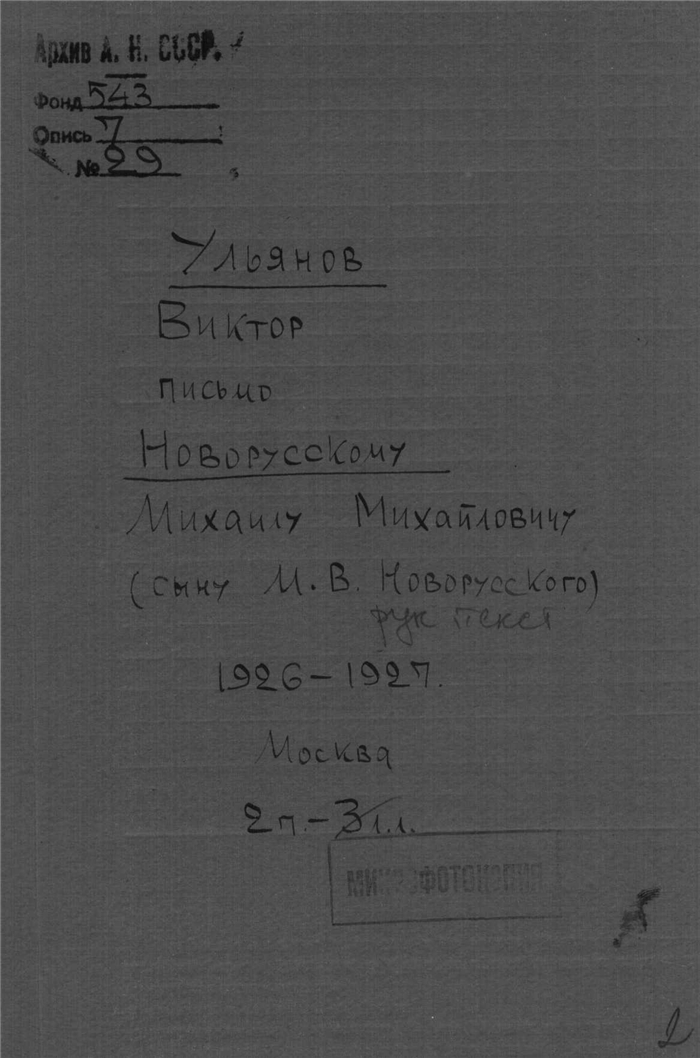 Архив А. Н. СССР.
Фонд 543
Опись 7
№ 29
Ульянов
Виктор
письмо
Новорусскому
Михаилу Михайловичу
(сыну М. В. Новорусского)
рук текст
1926-1927.
Москва
2 п. - 3 л.л.
МИКРОФОТОКОПИЯ
2